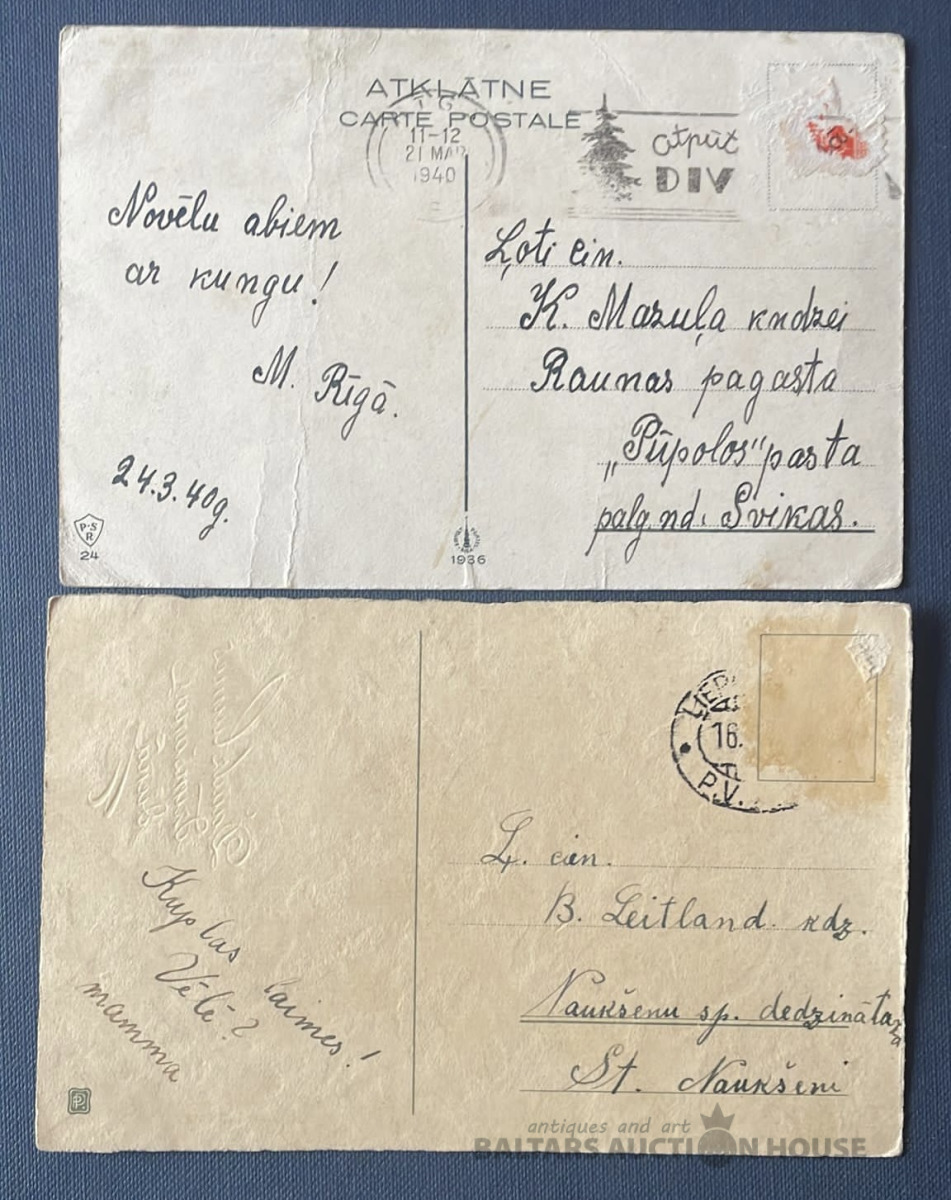 ATKLĀTNE
CARTE POSTALE
11-12
21 MAR
1940
atpūt
DIV
Novēlu abiem
ar kungu!
M. Rīgā.
24.3.40g.
P·S
R
24
1936
Ļoti cin.
K. Mazuļa kndzei
Raunas pagasta
„Pūpolos" pasta
palg. nd. Svikas.
16.
P.V.
Kuplas laimes!
Vēlē?
mamma
Ļ. cien.
B. Leitland. kdz.
Naukšenu sp. dedzinātava
St. Naukšeni
antiques and art
BALTARS AUCTION HOUSE